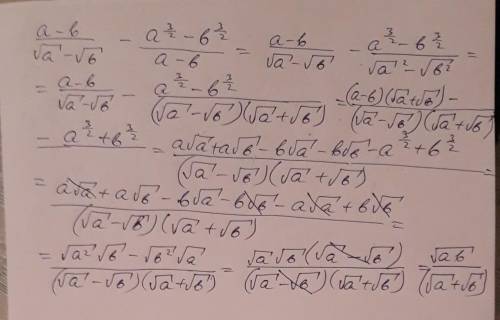 (a-b)/(√a-√b) - (a^(3/2)-b^(3/2))/(a-b) = (a-b)/(√a-√b) - (a^(3/2)-b^(3/2))/(√a²-√b²) =
= (a-b)/(√a-√b) - (a^(3/2)-b^(3/2))/((√a-√b)(√a+√b)) = ((a-b)(√a+√b)-)/((√a-√b)(√a+√b))
(- a^(3/2)+b^(3/2)) = (a√a+a√b-b√a-b√b-a^(3/2)+b^(3/2))/((√a-√b)(√a+√b)) =
= (a√a+a√b-b√a-b√b-a√a+b√b)/((√a-√b)(√a+√b)) =
= (√a²√b-√b²√a)/((√a-√b)(√a+√b)) = (√a√b(√a-√b))/((√a-√b)(√a+√b)) = √ab/(√a+√b)